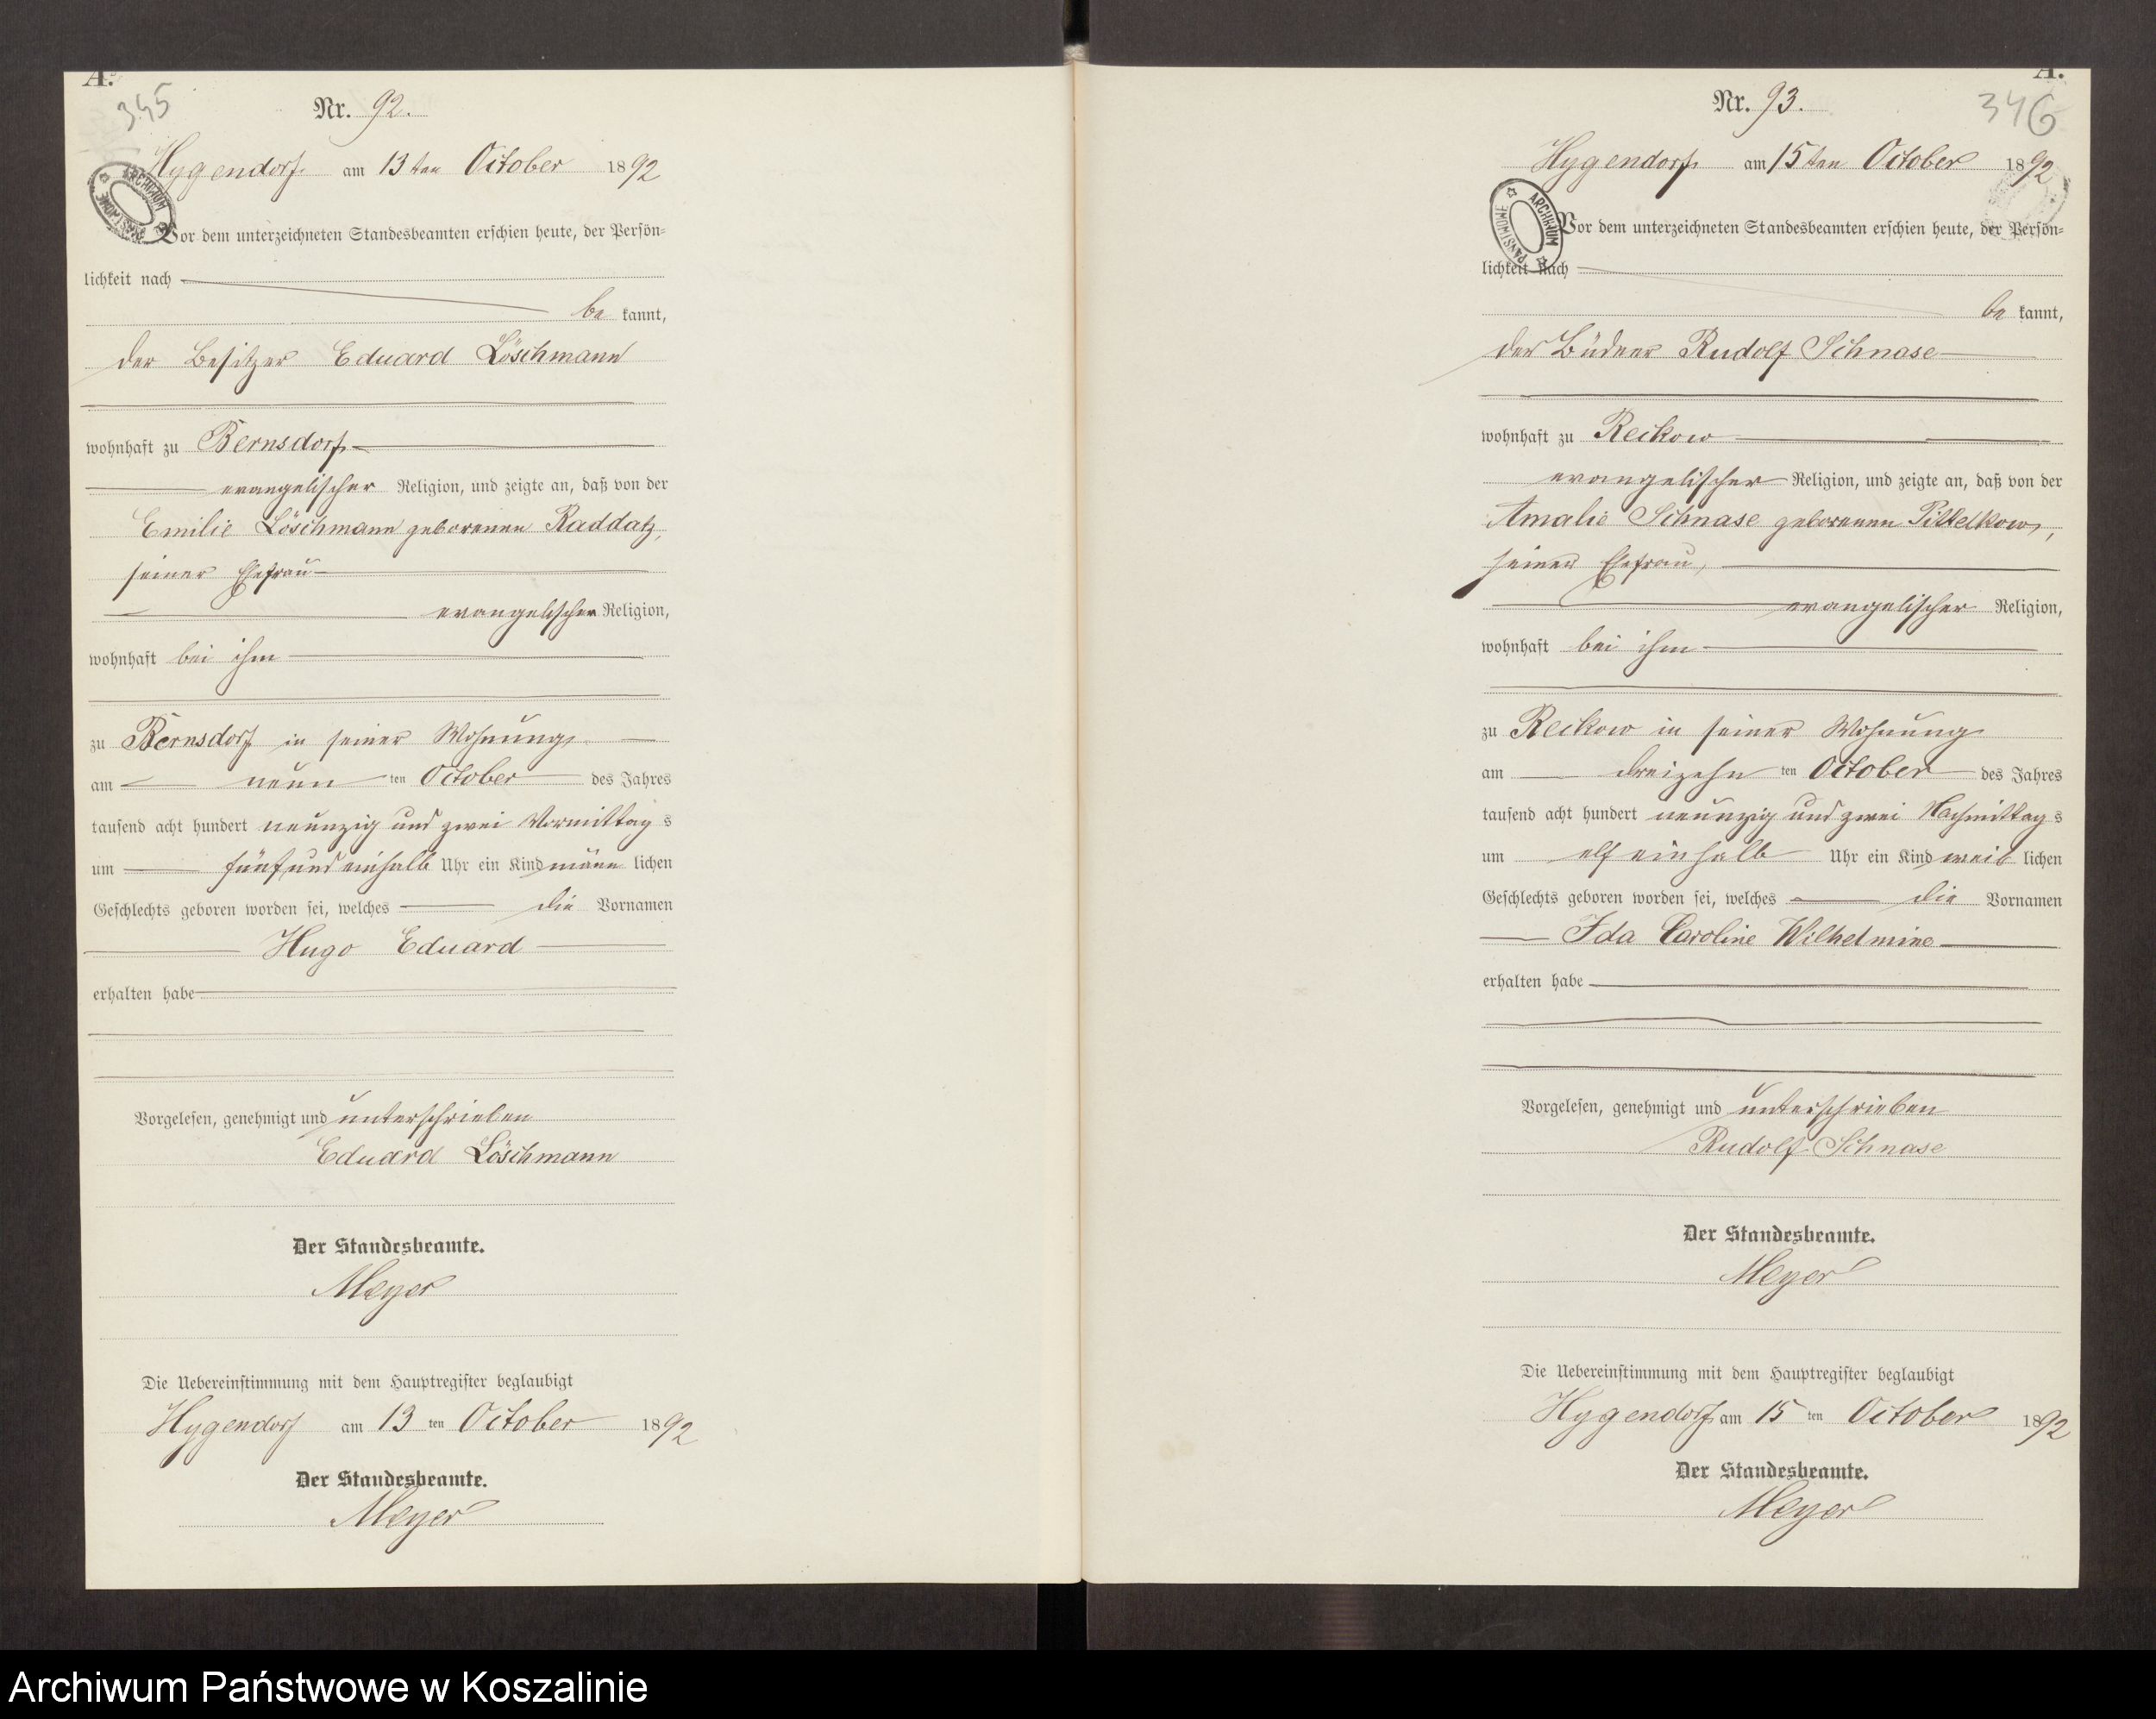 A.
345
Nr. 92.
Hygendorf am 13ten October 1892
ARCHIWUM PAŃSTWOWE
Vor dem unterzeichneten Standesbeamten erschien heute, der Persön=
lichkeit nach
be kannt,
der Besitzer Eduard Löschmann
wohnhaft zu Bernsdorf
evangelischer Religion, und zeigte an, daß von der
Emilie Löschmann geborenen Raddatz,
seiner Ehefrau
evangelischer Religion,
wohnhaft bei ihm
zu Bernsdorf in seiner Wohnung
am neun ten October des Jahres
tausend acht hundert neunzig und zwei Vormittag s
um fünf und einhalb Uhr ein Kind männ lichen
Geschlechts geboren worden sei, welches die Vornamen
Hugo Eduard
erhalten habe
Vorgelesen, genehmigt und unterschrieben
Eduard Löschmann
Der Standesbeamte.
Meyer
Die Uebereinstimmung mit dem Hauptregister beglaubigt
Hygendorf am 13 ten October 1892
Der Standesbeamte.
Meyer
A.
346
Nr. 93.
Hygendorf am 15ten October 1892
ARCHIWUM PAŃSTWOWE
Vor dem unterzeichneten Standesbeamten erschien heute, der Persön=
lichkeit nach
be kannt,
der Büdner Rudolf Schnase
wohnhaft zu Reckow
evangelischer Religion, und zeigte an, daß von der
Amalie Schnase geborenen Pittelkow,
seiner Ehefrau,
evangelischer Religion,
wohnhaft bei ihm
zu Reckow in seiner Wohnung
am dreizehn ten October des Jahres
tausend acht hundert neunzig und zwei Nachmittag s
um elf einhalb Uhr ein Kind weib lichen
Geschlechts geboren worden sei, welches die Vornamen
Ida Caroline Wilhelmine
erhalten habe
Vorgelesen, genehmigt und unterschrieben
Rudolf Schnase
Der Standesbeamte.
Meyer
Die Uebereinstimmung mit dem Hauptregister beglaubigt
Hygendorf am 15 ten October 1892
Der Standesbeamte.
Meyer
Archiwum Państwowe w Koszalinie